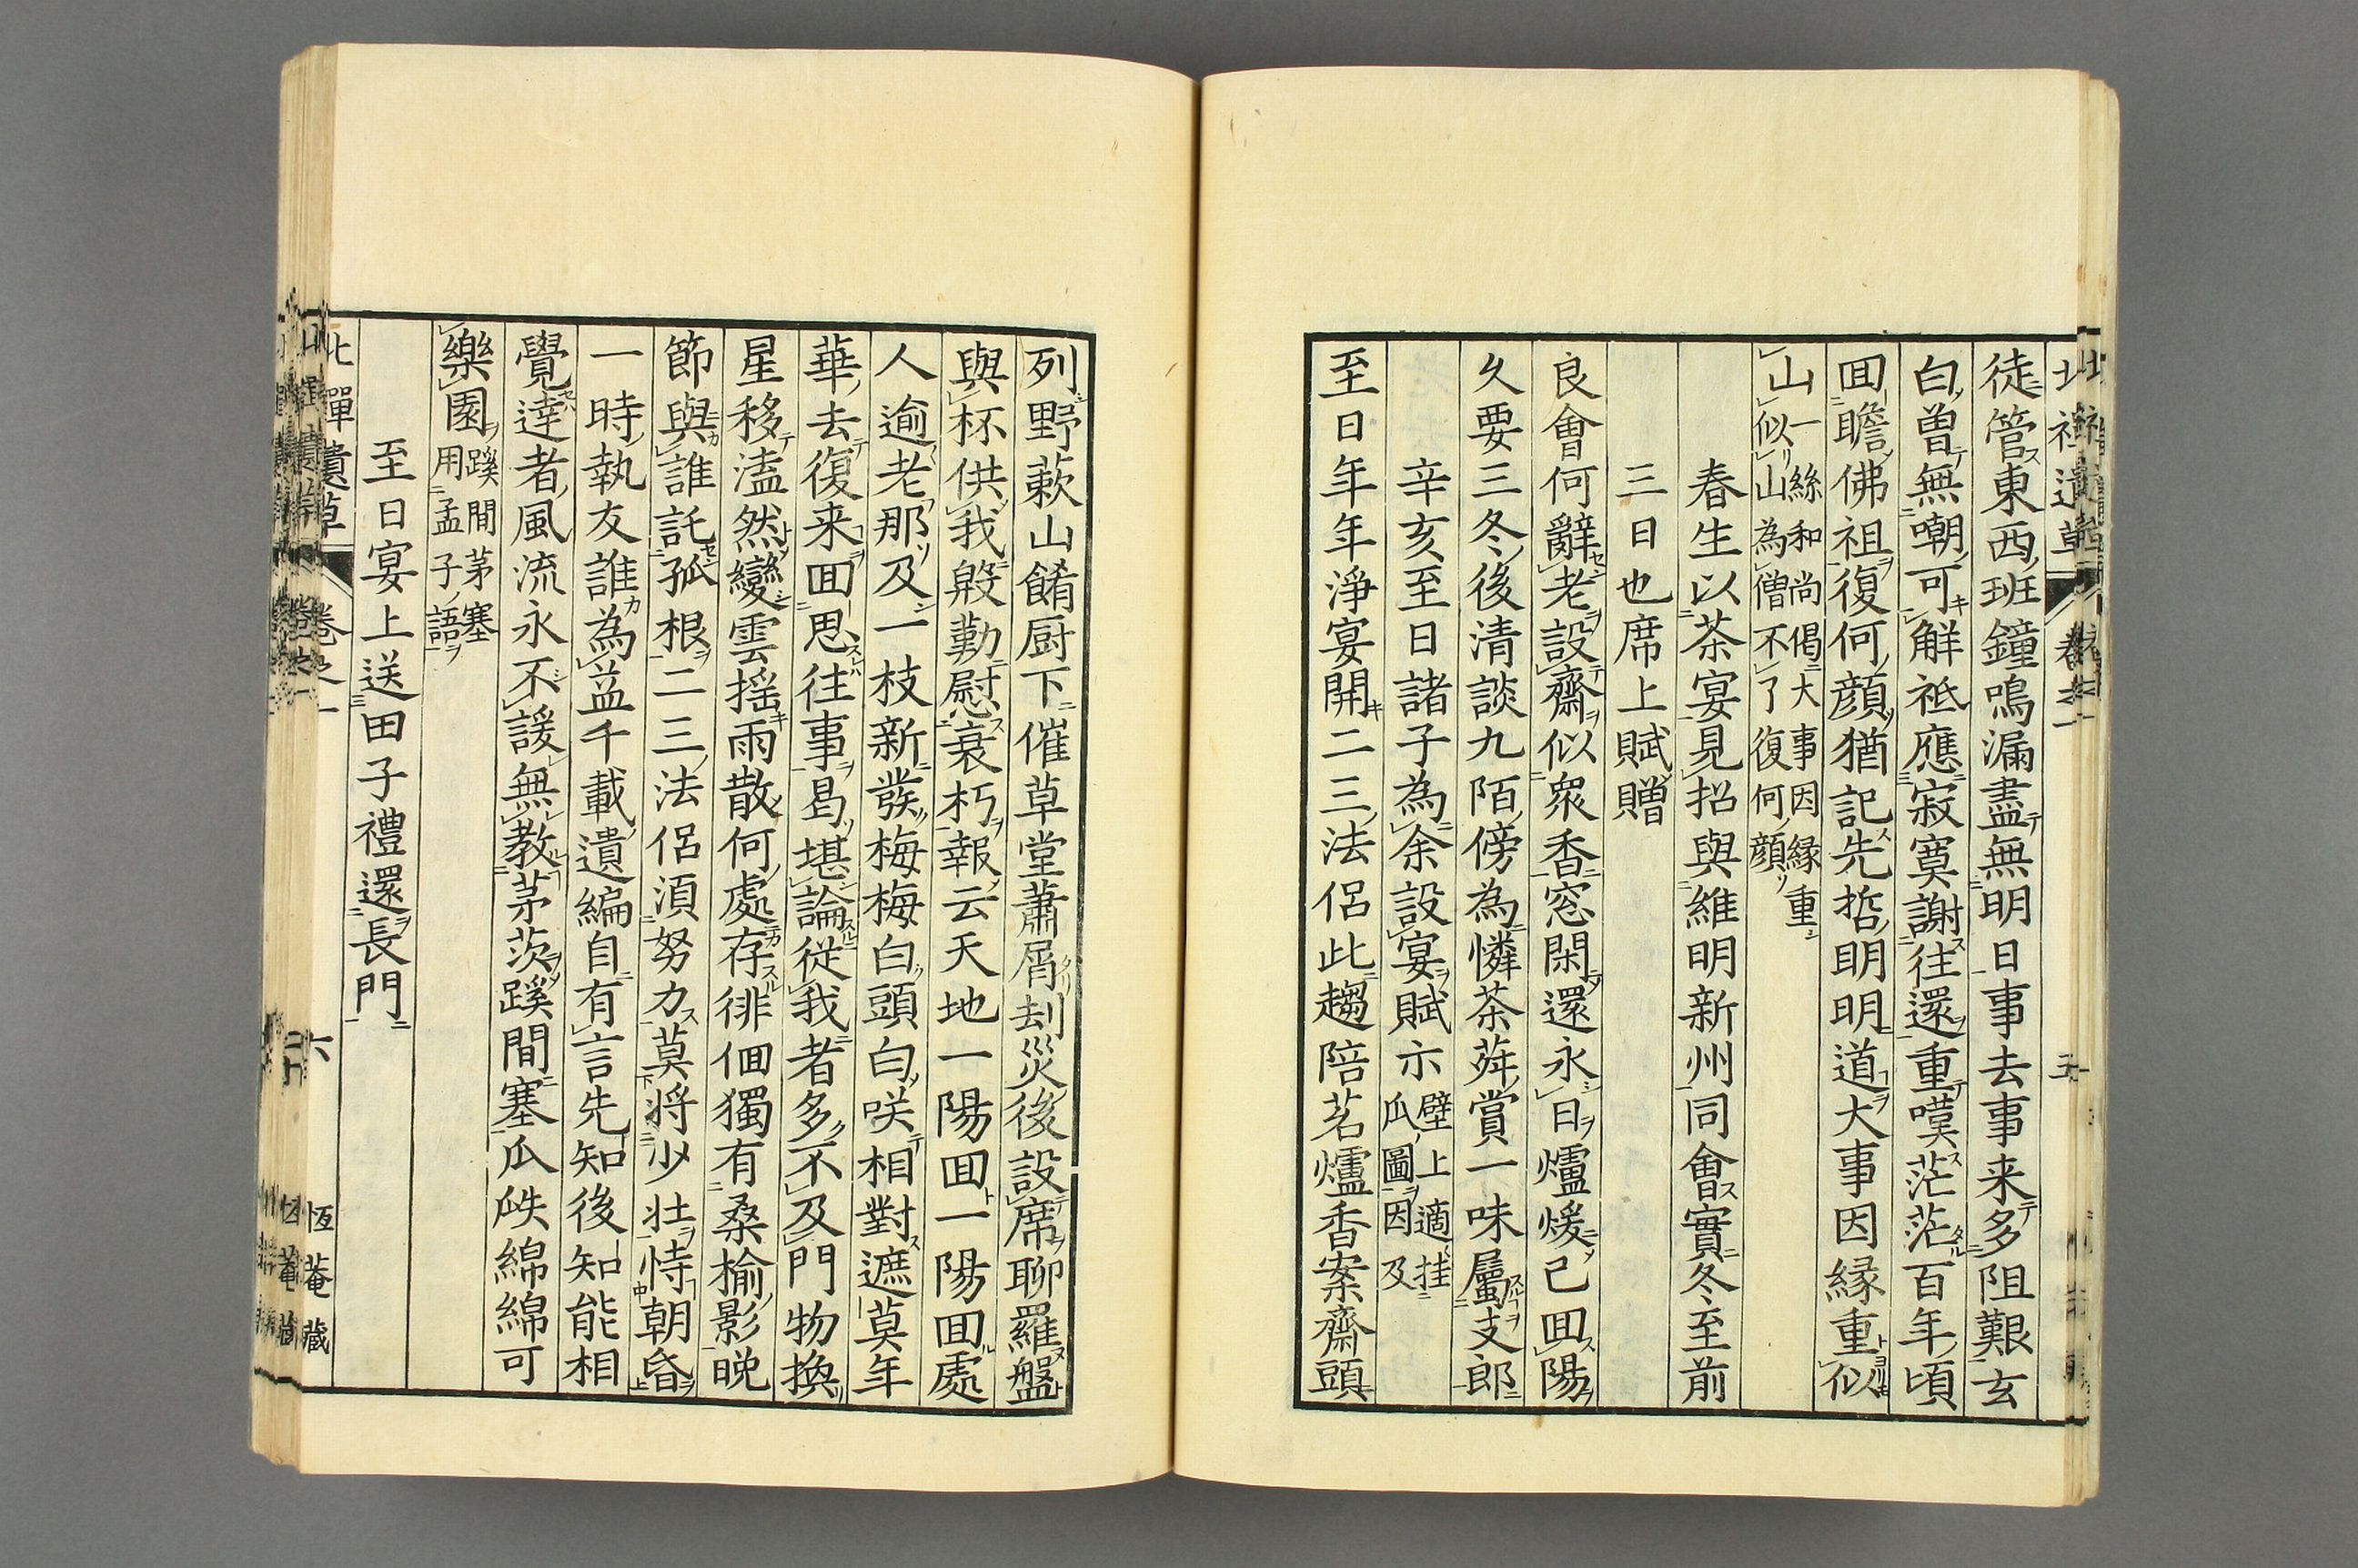 徒管東西班鐘鳴漏盡無明日事去事来多阻艱玄
白曽無嘲可解祗應寂寞謝往還重嘆茫茫百年頃
囬瞻佛祖復何顔猶記先哲明明道大事因縁重似
山一絲和尚偈大事因縁重
似山為僧不了復何顔
春生以茶宴見招與維明新州同會實冬至前
三日也席上賦贈
良會何辭老設齋似衆香窓閑還永日爐煖已囬陽
久要三冬後清談九陌傍為憐茶荈賞一味屬支郎
辛亥至日諸子為余設宴賦示壁上適挂
瓜圖因及
至日年年淨宴開二三法侶此趨陪茗爐香案齋頭
列野蔌山餚厨下催草堂蕭屑刧災後設席聊羅盤
與杯供我慇勤慰衰朽報云天地一陽囬一陽囬處
人逾老那及一枝新發梅梅白頭白咲相對遮莫年
華去復来囬思往事曷堪論従我者多不及門物換
星移溘然變雲揺雨散何處存徘徊獨有桑榆影晩
節與誰託孤根二三法侶須努力莫将少壮恃朝昏
一時執友誰為益千載遺編自有言先知後知能相
覺達者風流永不諼無教茅茨蹊間塞瓜瓞綿綿可
樂園蹊間茅塞
用孟子語
至日宴上送田子禮還長門
北禪遺草 卷之一 六 恆菴藏